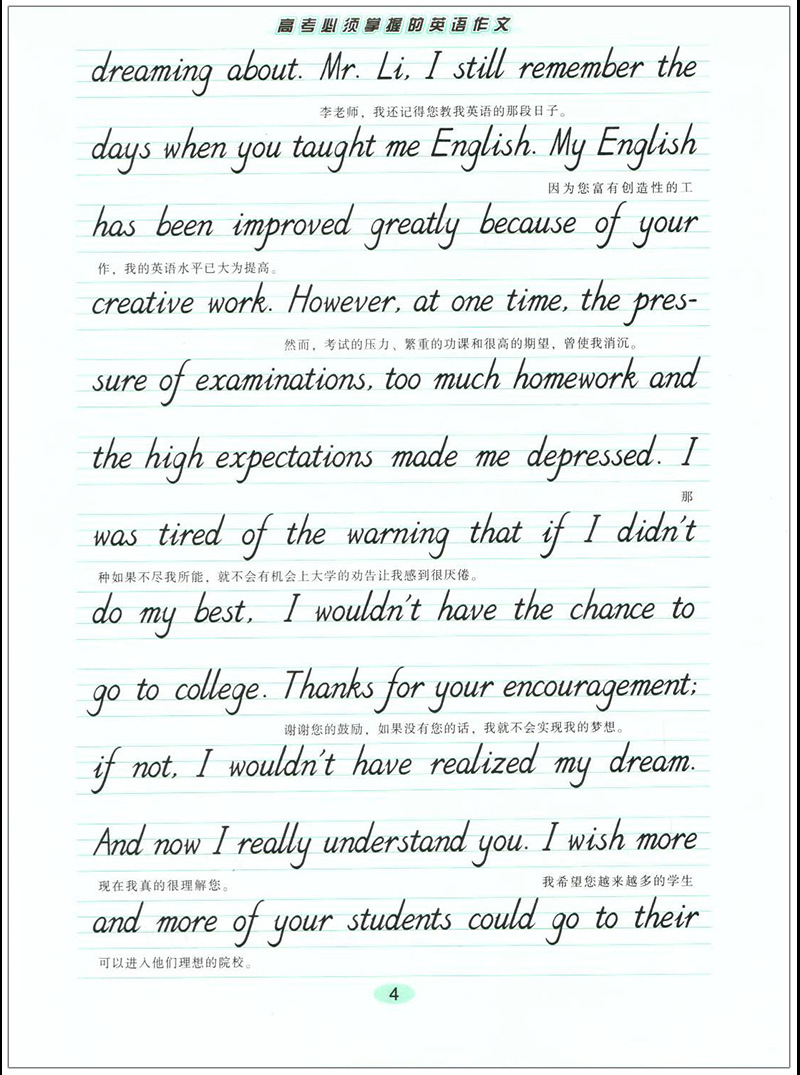 高考必须掌握的英语作文
dreaming about. Mr. Li, I still remember the
李老师，我还记得您教我英语的那段日子。
days when you taught me English. My English
因为您富有创造性的工
has been improved greatly because of your
作，我的英语水平已大为提高。
creative work. However, at one time, the pres-
然而，考试的压力、繁重的功课和很高的期望，曾使我消沉。
sure of examinations, too much homework and
the high expectations made me depressed. I
那
was tired of the warning that if I didn't
种如果不尽我所能，就不会有机会上大学的劝告让我感到很厌倦。
do my best, I wouldn't have the chance to
go to college. Thanks for your encouragement;
谢谢您的鼓励，如果没有您的话，我就不会实现我的梦想。
if not, I wouldn't have realized my dream.
And now I really understand you. I wish more
现在我真的很理解您。 我希望您越来越多的学生
and more of your students could go to their
可以进入他们理想的院校。
4